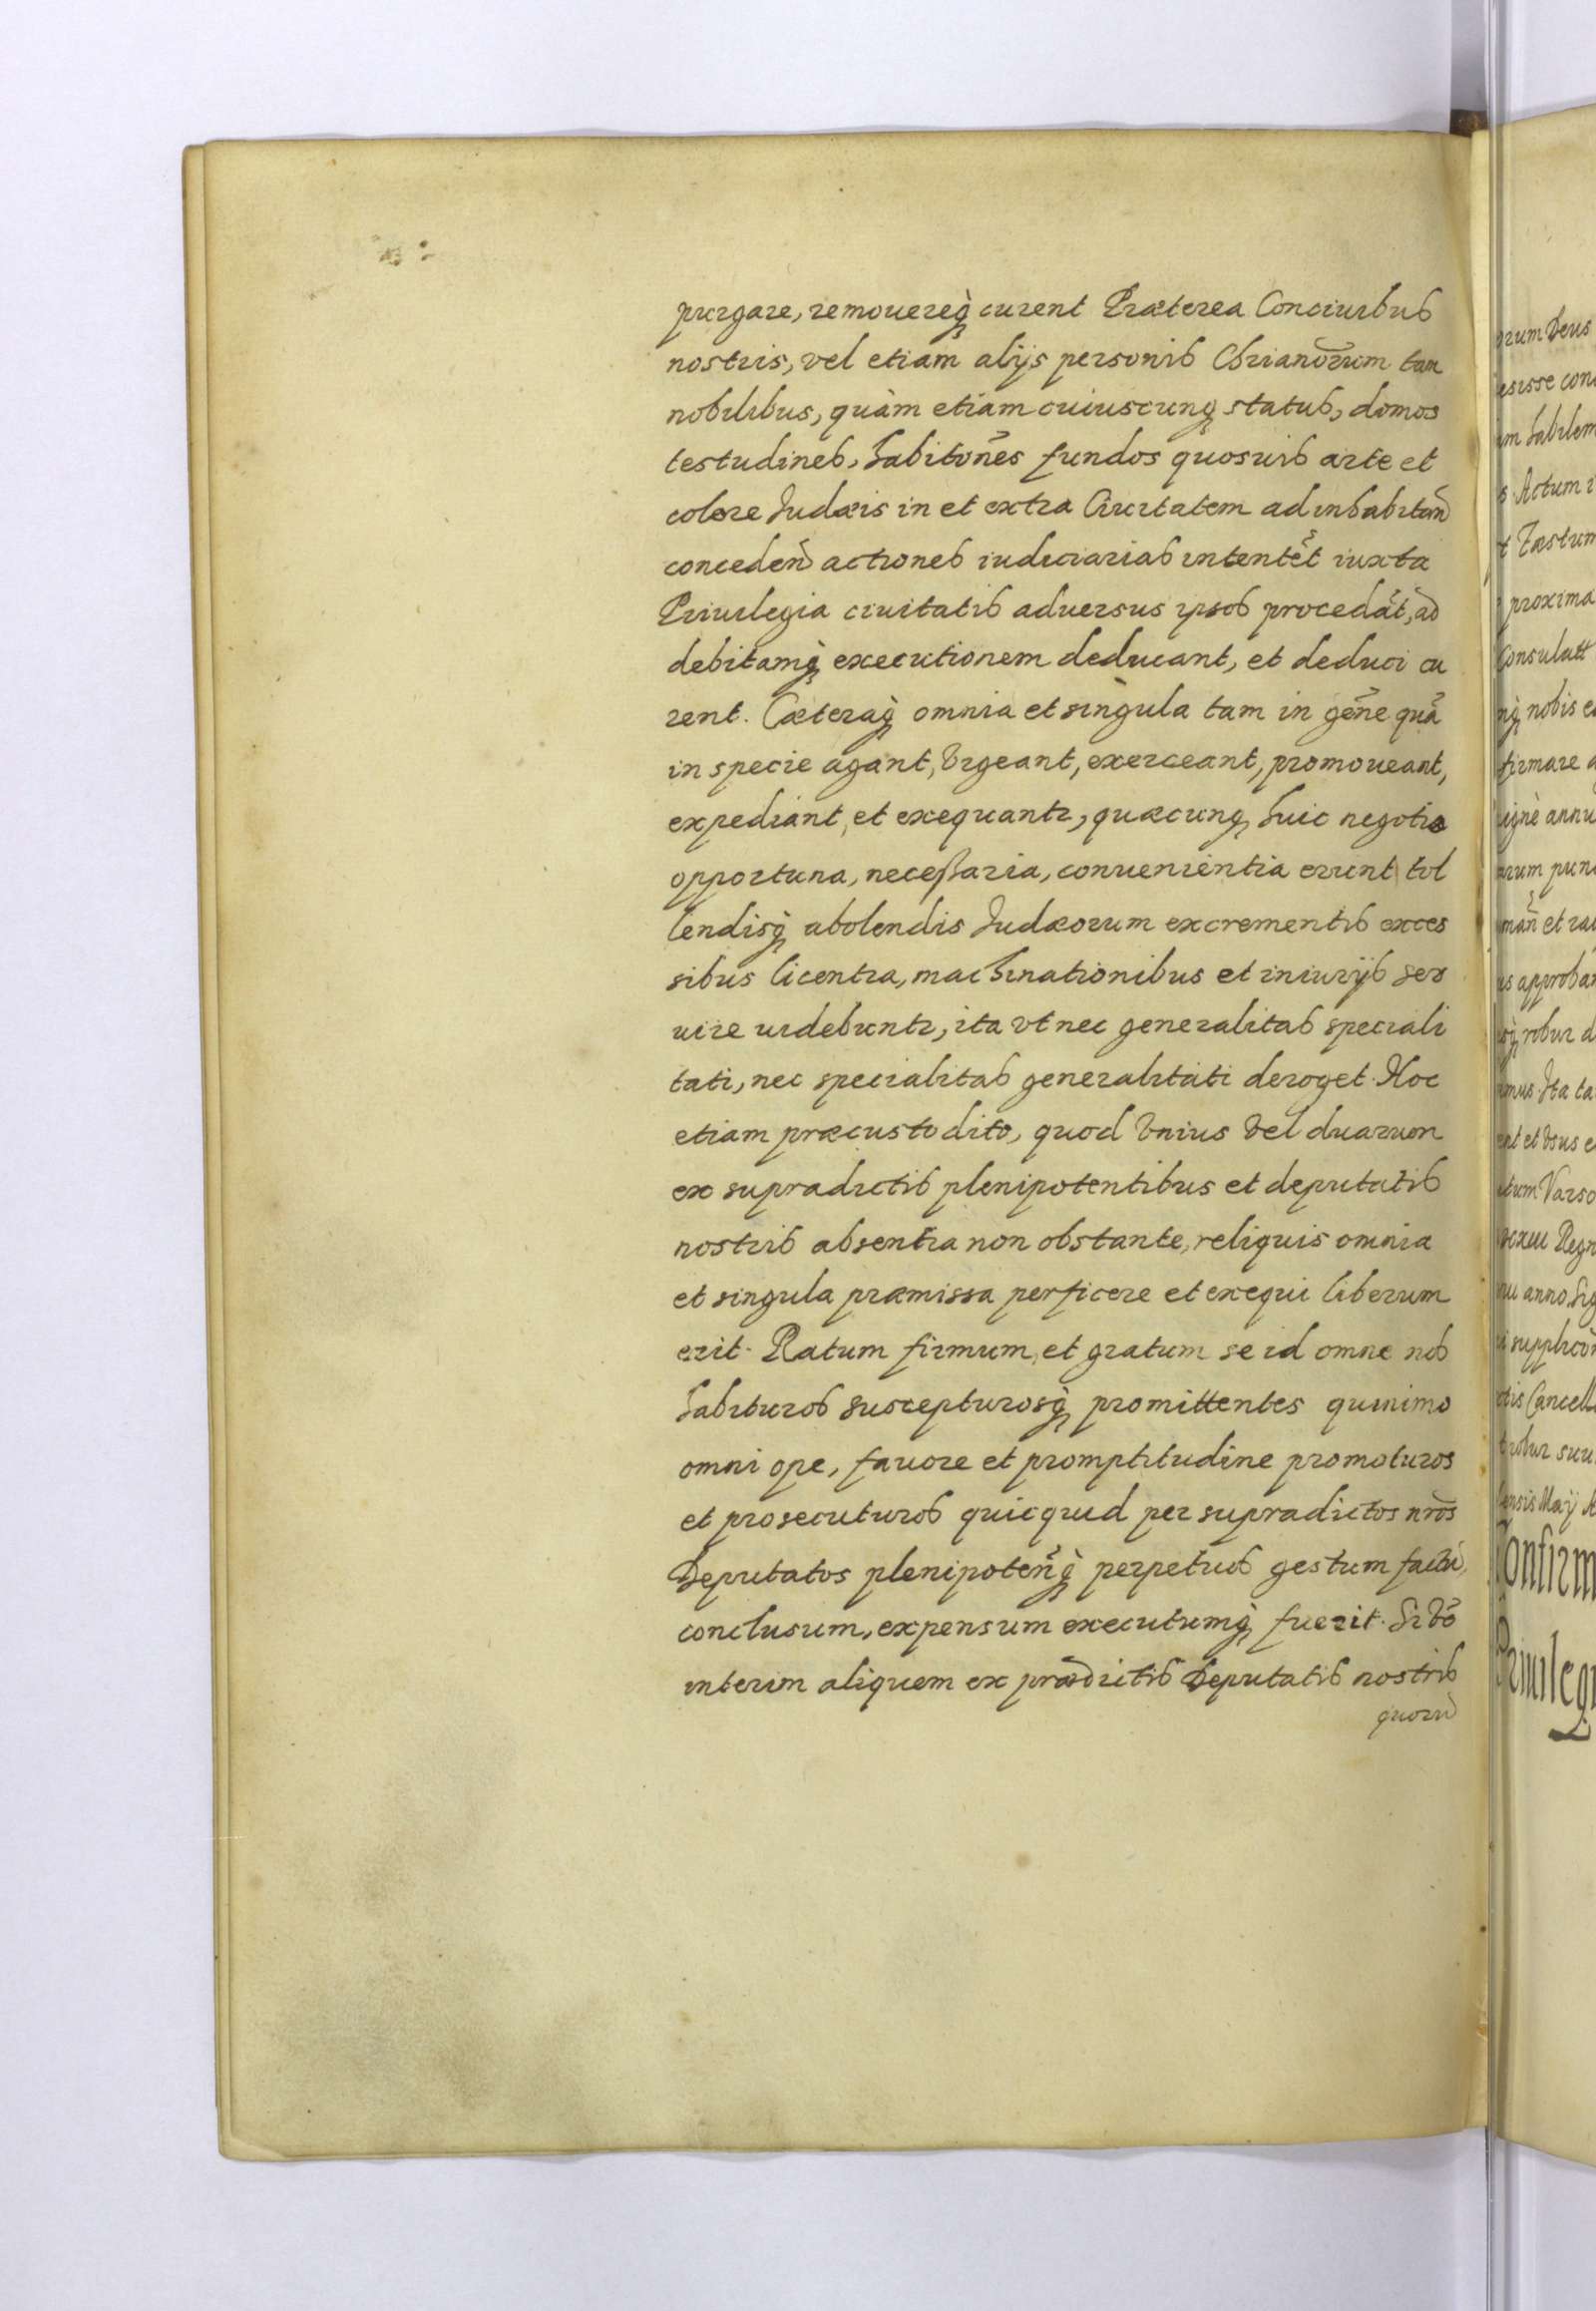 purgare, remouereq̀ꝫ curent Præterea Conciuibus
nostris, vel etiam alijs personis Chrianōrum tam
nobilibus, quàm etiam cuiuscunqꝫ status, domos
testudines, habitōnes fundos quosuis arte et
colore Judæis in et extra Ciuitatem ad inhabitan̄
conceden̄ actiones iudiciarias intentēt iuxta
Priuilegia ciuitatis aduersus ipsos procedāt, ad
debitamq̀ꝫ executionem deducant, et deduci cu
rent. Cæteraq̀ꝫ omnia et singula tam in gēne quā
in specie agant, Vrgeant, exerceant, promoueant,
expediant, et exequantr, quæcunqꝫ huic negotio
opportuna, neceßaria, conuenientia erunt tol
lendisq̀ꝫ abolendis Judæorum excrementis exces
sibus licentia, machinationibus et iniurijs ser
uire uidebuntr, ita vt nec generalitas speciali
tati, nec specialitas generalitati deroget. Hoc
etiam præcustodito, quod Vnius Vel duarum
ex supradictis plenipotentibus et deputatis
nostris absentia non obstante, reliquis omnia
et singula præmissa perficere et exequi liberum
erit. Ratum firmum, et gratum se id omne nos
habituros suscepturosq̀ꝫ promittentes quinimo
omni ope, fauore et promptitudine promoturos
et prosecuturos quicquid per supradictos nr̄os
Deputatos plenipoten̄q̀ꝫ perpetuos gestum factū,
conclusum, expensum executumq̀ꝫ fuerit. Si Vō
interim aliquem ex prædictis Deputatis nostris
quorū
orum Deus
Actum
proxima
nobis
firmare
et
robur
Jta
et Vsus
anno
Maij